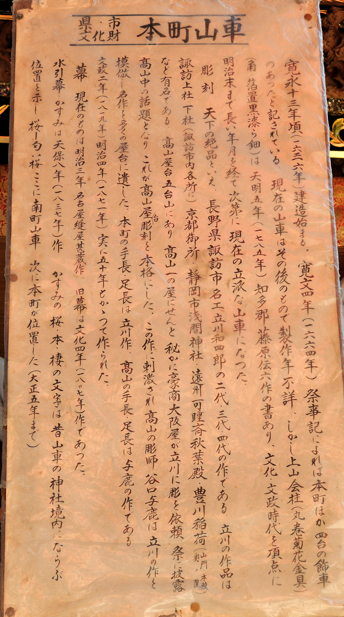 県 市
文・化財
本町山車
寛永十三年頃(一六三六年)建造始まる。 寛文四年(一六六四年) 祭事記によれば本町ほか四台の飾車
のあったと記されている 現在の山車はその後のもので製作年不詳、しかし上山会柱(丸巻菊花金具)
箔置黒漆ら細は 天明五年(一七八五年) 知多郡 藤原伝六作の書あり、文化 文政時代を頂点に
明治末まで長い年月を経て次第に現在の立派な山車になった。
彫刻 天下の絶品といえ、長野県諏訪市名工立川和四郎の二代、三代四代の作である 立川の作品は
諏訪上社 下社(諏訪市内各所に) 京都御所 静岡市浅間神社 遠州可睡斎秋葉殿 豊川稲荷
など有名である 高山屋台五台山にあり 高山一の屋にせんと 秘かに豪商大阪屋が立川に彫を依頼、祭に披露
高山中の話題となり これが高山屋彫刻を本格にした。この作に刺激され高山の彫師 谷口与鹿は 立川の作を
模倣し名作を多くの屋台に遺した。本町の手長足長は立川作 高山の手長足長は与鹿の作である
文政二年(一八一九年)明治四年(一八七一年)実に五十年をかゝって作られた。
幕 現在のものは明治三年名古屋縫屋甚蔵作 旧幕は文化四年(一八〇七年)作であった。
水引幕 かすみは天保八年(一八三七年)作 かすみの桜 本 棲の文字は 昔山車の神社境内にならぶ
位置を示し 桜一句 桜 ここに南町山車 次に本町が位置した(大正五年まで)